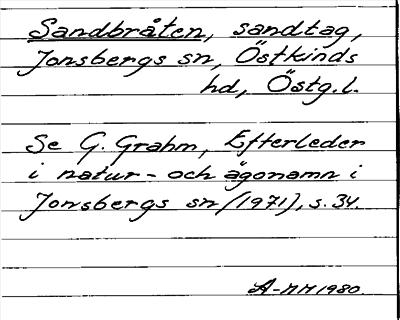 Sandbråten, sandtag,
Jonsbergs sn, Östkinds
hd, Östg.l.
Se G. Grahm, Efterleder
i natur- och ägonamn i
Jonsbergs sn (1971), s. 34.
A-NM 1980.